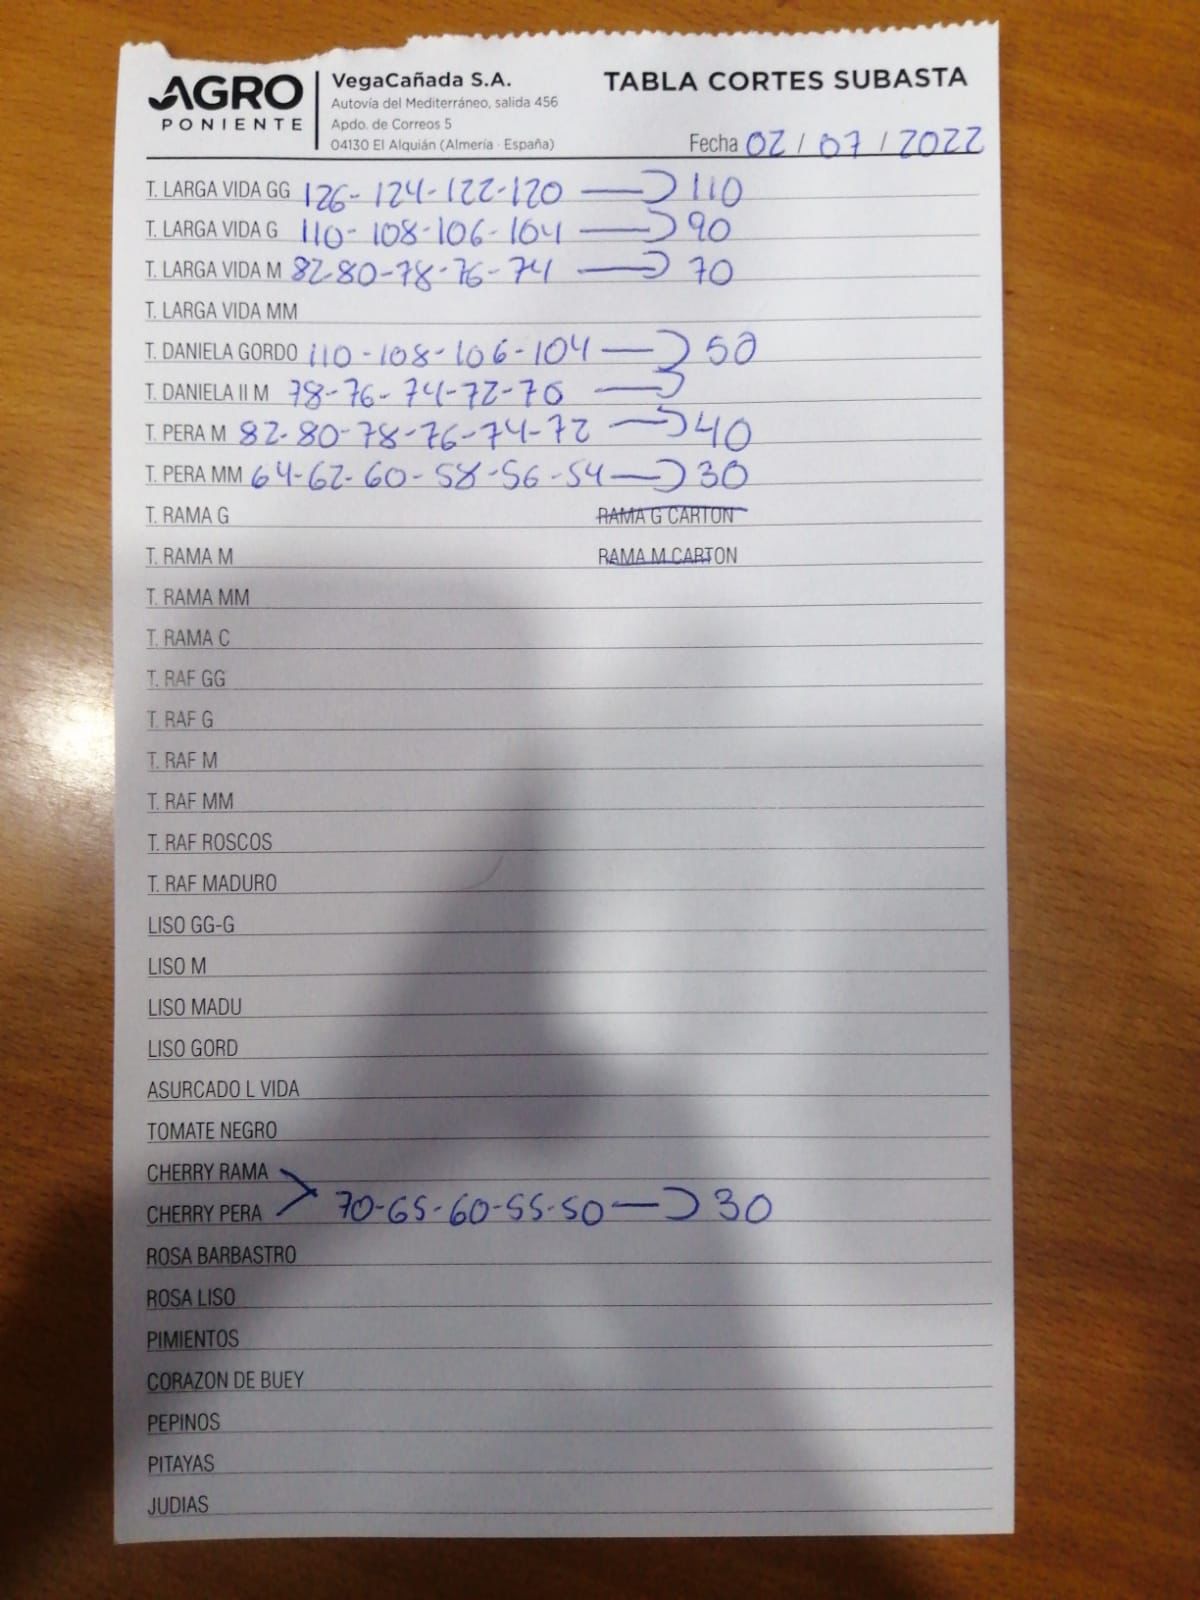 AGRO PONIENTE
VegaCañada S.A.
Autovía del Mediterráneo, salida 456
Apdo. de Correos 5
04130 El Alquián (Almería · España)
TABLA CORTES SUBASTA
Fecha 02 / 07 / 2022
T. LARGA VIDA GG 126-124-122-120 110
T. LARGA VIDA G 110-108-106-104 90
T. LARGA VIDA M 82-80-78-76-74 70
T. LARGA VIDA MM
T. DANIELA GORDO 110-108-106-104 50
T. DANIELA II M 78-76-74-72-70
T. PERA M 82-80-78-76-74-72 40
T. PERA MM 64-62-60-58-56-54 30
T. RAMA G RAMA G CARTON
T. RAMA M RAMA M CARTON
T. RAMA MM
T. RAMA C
T. RAF GG
T. RAF G
T. RAF M
T. RAF MM
T. RAF ROSCOS
T. RAF MADURO
LISO GG-G
LISO M
LISO MADU
LISO GORD
ASURCADO L VIDA
TOMATE NEGRO
CHERRY RAMA
CHERRY PERA 70-65-60-55-50 30
ROSA BARBASTRO
ROSA LISO
PIMIENTOS
CORAZON DE BUEY
PEPINOS
PITAYAS
JUDIAS